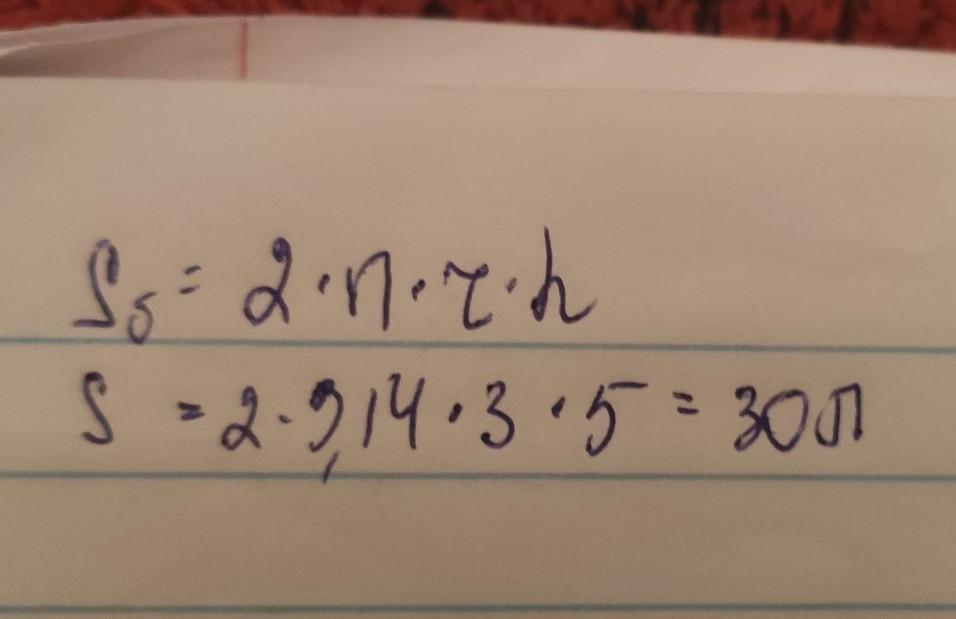 Sб = 2·П·r·h
S = 2·3,14·3·5 = 30П